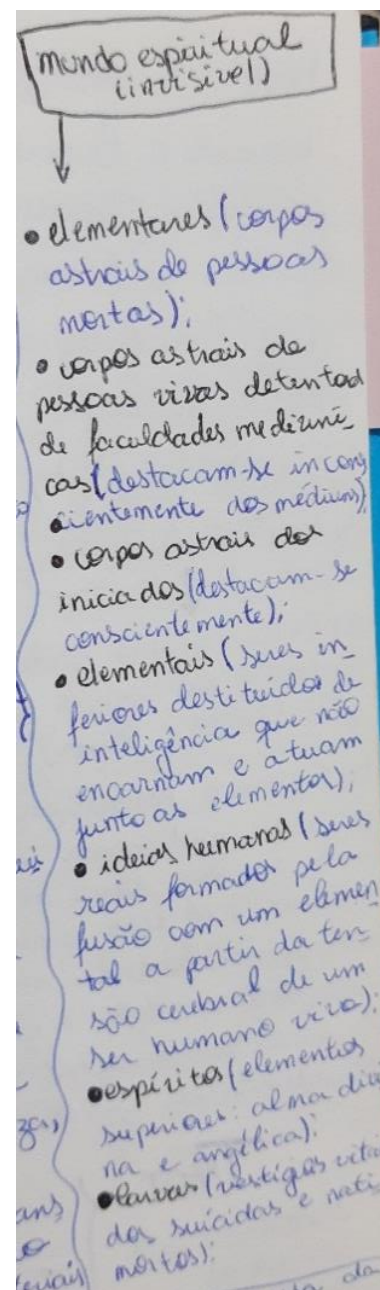 mundo espiritual
(invisível)
• elementares (corpos
astrais de pessoas
mortas);
• corpos astrais de
pessoas vivas detentod
de faculdades mediúni_
cas (destacam-se incons
cientemente dos médiuns);
• corpos astrais dos
iniciados (destacam-se
conscientemente);
• elementais (seres in_
feriores destituídos de
inteligência que não
encarnam e atuam
junto as elementos);
• ideias humanas (seres
reais formados pela
fusão com um elemen
tal a partir da ten_
são cerebral de um
ser humano vivo);
• espíritos (elementos
superiores: alma divi
na e angélica);
• larvas (vestígios vitai
dos suicidas e nati
mortos);
da